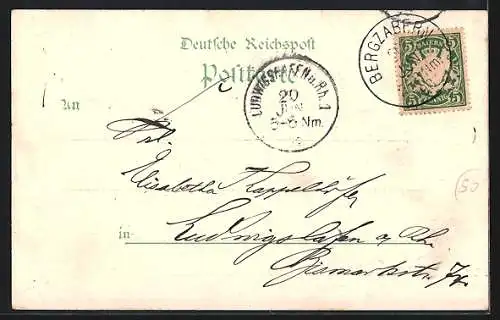 Deutsche Reichspost
Postkarte
BERGZABERN
BAYERN
5 5
5 5
LUDWIGSHAFEN a. Rh. 1
20
JUN
5-6 Nm.
An
Frl.
Elisabetha Kappelhöfer
in Ludwigshafen a Rhn
Bismarkstr.
50